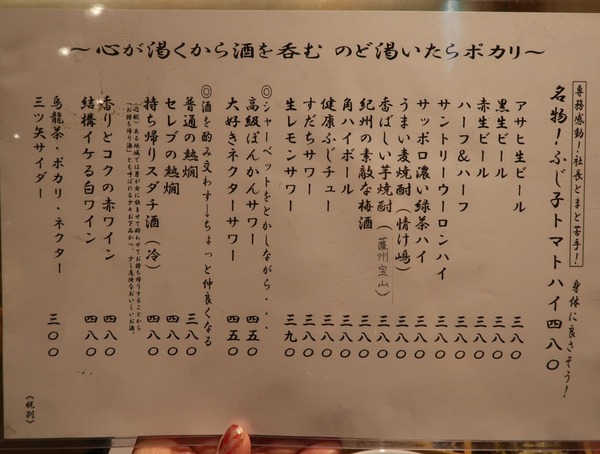 ～心が渇くから酒を呑む のど渇いたらポカリ～
専務感動！社長とまと苦手！
名物！ふじ子トマトハイ四八〇
身体に良さそう！
アサヒ生ビール 三八〇
黒生ビール 三八〇
赤生ビール 三八〇
ハーフ＆ハーフ 三八〇
サントリーウーロンハイ 三八〇
サッポロ濃い緑茶ハイ 三八〇
うまい麦焼酎（情け嶋） 三八〇
香ばしい芋焼酎（薩州宝山） 三八〇
紀州の素敵な梅酒 三八〇
角ハイボール 三八〇
健康ふじチュー 三八〇
すだちサワー 三八〇
生レモンサワー 三九〇
◎シャーベットをとかしながら・・・
高級ぽんかんサワー 四五〇
大好きネクターサワー 四五〇
◎酒を酌み交わす→ちょっと仲良くなる
普通の熱燗 三八〇
セレブの熱燗 四八〇
持ち帰りスダチ酒（冷） 四八〇
香りとコクの赤ワイン 四八〇
結構イケる白ワイン 四八〇
烏龍茶・ポカリ・ネクター 三〇〇
三ツ矢サイダー
《税別》